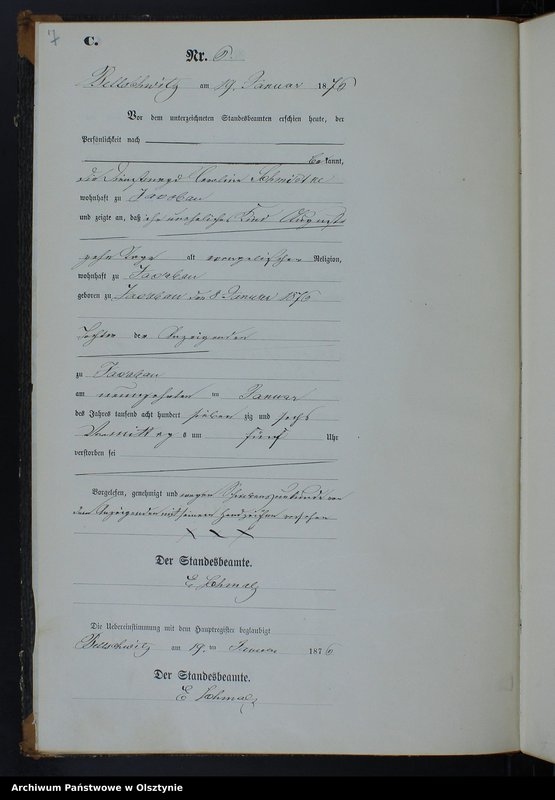 7
C.
Nr. 6
Bellschwitz am 19. Januar 1876
Vor dem unterzeichneten Standesbeamten erschien heute, der
Persönlichkeit nach
bekannt,
die Dienstmagd Caroline Schmidtke
wohnhaft zu Jacobau
und zeigte an, daß ihr uneheliches Kind Auguste
zehn Tage alt evangelischer Religion,
wohnhaft zu Jacobau
geboren zu Jacobau den 8 Januar 1876
Tochter der Anzeigenden
zu Jacobau
am neunzehnten ten Januar
des Jahres tausend acht hundert sieben zig und sechs
Vormittags um fünf Uhr
verstorben sei
Vorgelesen, genehmigt und wegen Schreibensunkunde von
dem Anzeigenden mit seinem Handzeichen versehen
XXX
Der Standesbeamte.
E Schmalz
Die Uebereinstimmung mit dem Hauptregister beglaubigt
Bellschwitz am 19. ten Januar 1876
Der Standesbeamte.
E Schmalz
Archiwum Państwowe w Olsztynie